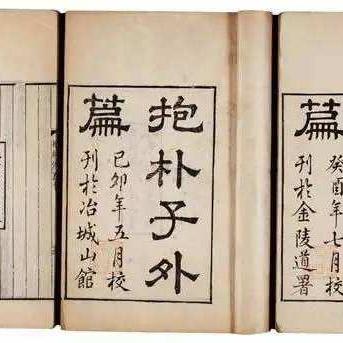 篇
癸酉年七月校
刊於金陵道署
抱朴子外
篇
己卯年五月校
刊於冶城山館